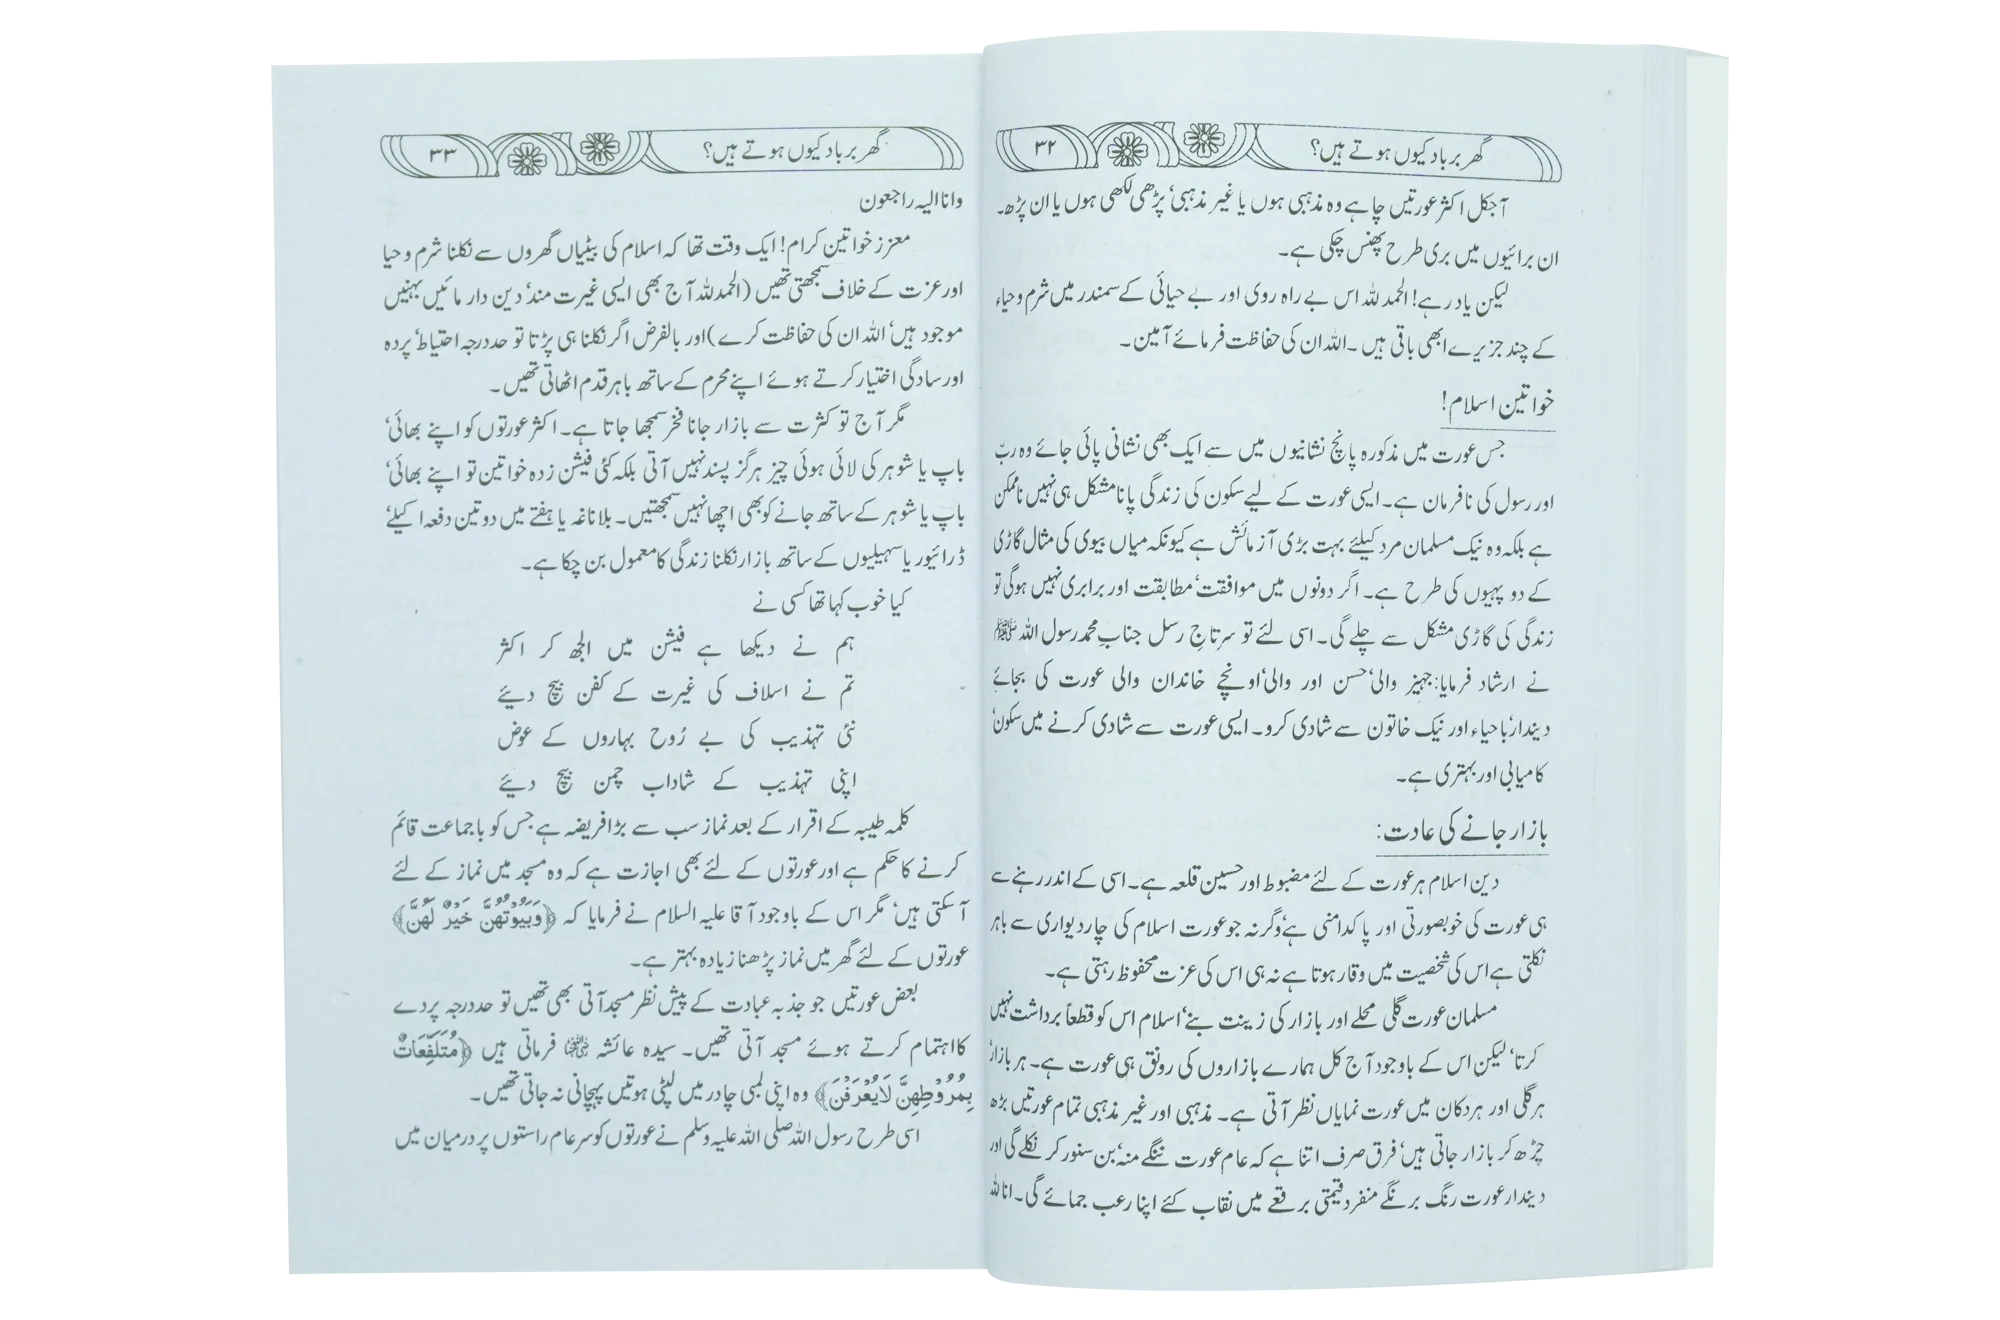 گھر برباد کیوں ہوتے ہیں؟ ۳۲
آجکل اکثر عورتیں چاہے وہ مذہبی ہوں یا غیر مذہبی‘ پڑھی لکھی ہوں یا ان پڑھ۔
ان برائیوں میں بری طرح پھنس چکی ہے۔
لیکن یاد رہے! الحمد للہ اس بے راہ روی اور بے حیائی کے سمندر میں شرم و حیاء
کے چند جزیرے ابھی باقی ہیں۔ اللہ ان کی حفاظت فرمائے آمین۔
خواتین اسلام!
جس عورت میں مذکورہ پانچ نشانیوں میں سے ایک بھی نشانی پائی جائے وہ ربّ
اور رسول کی نافرمان ہے۔ ایسی عورت کے لیے سکون کی زندگی پانا مشکل ہی نہیں ناممکن
ہے بلکہ وہ نیک مسلمان مرد کیلئے بہت بڑی آزمائش ہے کیونکہ میاں بیوی کی مثال گاڑی
کے دو پہیوں کی طرح ہے۔ اگر دونوں میں موافقت‘ مطابقت اور برابری نہیں ہوگی تو
زندگی کی گاڑی مشکل سے چلے گی۔ اسی لئے تو سرتاجِ رسل جنابِ محمد رسول اللہ ﷺ
نے ارشاد فرمایا: جہیز والی‘ حسن اور والی‘ اونچے خاندان والی عورت کی بجائے
دیندار‘ باحیاء اور نیک خاتون سے شادی کرو۔ ایسی عورت سے شادی کرنے میں سکون‘
کامیابی اور بہتری ہے۔
بازار جانے کی عادت:
دین اسلام ہر عورت کے لئے مضبوط اور حسین قلعہ ہے۔ اسی کے اندر رہنے سے
ہی عورت کی خوبصورتی اور پاکدامنی ہے‘ وگرنہ جو عورت اسلام کی چار دیواری سے باہر
نکلتی ہے اس کی شخصیت میں وقار ہوتا ہے نہ ہی اس کی عزت محفوظ رہتی ہے۔
مسلمان عورت گلی محلے اور بازار کی زینت بنے‘ اسلام اس کو قطعاً برداشت نہیں
کرتا‘ لیکن اس کے باوجود آج کل ہمارے بازاروں کی رونق ہی عورت ہے۔ ہر بازار‘
ہر گلی اور ہر دکان میں عورت نمایاں نظر آتی ہے۔ مذہبی اور غیر مذہبی تمام عورتیں بڑھ
چڑھ کر بازار جاتی ہیں‘ فرق صرف اتنا ہے کہ عام عورت ننگے منہ‘ بن سنور کر نکلے گی اور
دیندار عورت رنگ برنگے منفرد قیمتی برقعے میں نقاب کئے اپنا رعب جمائے گی۔ انا للہ
گھر برباد کیوں ہوتے ہیں؟ ۳۳
وانا الیہ راجعون
معزز خواتین کرام! ایک وقت تھا کہ اسلام کی بیٹیاں گھروں سے نکلنا شرم و حیا
اور عزت کے خلاف سمجھتی تھیں (الحمدللہ آج بھی ایسی غیرت مند‘ دین دار مائیں بہنیں
موجود ہیں‘ اللہ ان کی حفاظت کرے) اور بالفرض اگر نکلنا ہی پڑتا تو حد درجہ احتیاط‘ پردہ
اور سادگی اختیار کرتے ہوئے اپنے محرم کے ساتھ باہر قدم اٹھاتی تھیں۔
مگر آج تو کثرت سے بازار جانا فخر سمجھا جاتا ہے۔ اکثر عورتوں کو اپنے بھائی‘
باپ یا شوہر کی لائی ہوئی چیز ہرگز پسند نہیں آتی بلکہ کئی فیشن زدہ خواتین تو اپنے بھائی‘
باپ یا شوہر کے ساتھ جانے کو بھی اچھا نہیں سمجھتیں۔ بلاناغہ یا ہفتے میں دو تین دفعہ اکیلے‘
ڈرائیور یا سہیلیوں کے ساتھ بازار نکلنا زندگی کا معمول بن چکا ہے۔
کیا خوب کہا تھا کسی نے
ہم نے دیکھا ہے فیشن میں الجھ کر اکثر
تم نے اسلاف کی غیرت کے کفن بیچ دیئے
نئی تہذیب کی بے رُوح بہاروں کے عوض
اپنی تہذیب کے شاداب چمن بیچ دیئے
کلمہ طیبہ کے اقرار کے بعد نماز سب سے بڑا فریضہ ہے جس کو باجماعت قائم
کرنے کا حکم ہے اور عورتوں کے لئے بھی اجازت ہے کہ وہ مسجد میں نماز کے لئے
آسکتی ہیں‘ مگر اس کے باوجود آقا علیہ السلام نے فرمایا کہ ﴿وَبُيُوْتُهُنَّ خَيْرٌ لَهُنَّ﴾
عورتوں کے لئے گھر میں نماز پڑھنا زیادہ بہتر ہے۔
بعض عورتیں جو جذبہ عبادت کے پیش نظر مسجد آتی بھی تھیں تو حد درجہ پردے
کا اہتمام کرتے ہوئے مسجد آتی تھیں۔ سیدہ عائشہ فرماتی ہیں ﴿مُتَلَفِّعَاتٌ
بِمُرُوْطِهِنَّ لَايُعْرَفْنَ﴾ وہ اپنی لمبی چادر میں لپٹی ہوتیں پہچانی نہ جاتی تھیں۔
اسی طرح رسول اللہ صلی اللہ علیہ وسلم نے عورتوں کو سرعام راستوں پر درمیان میں